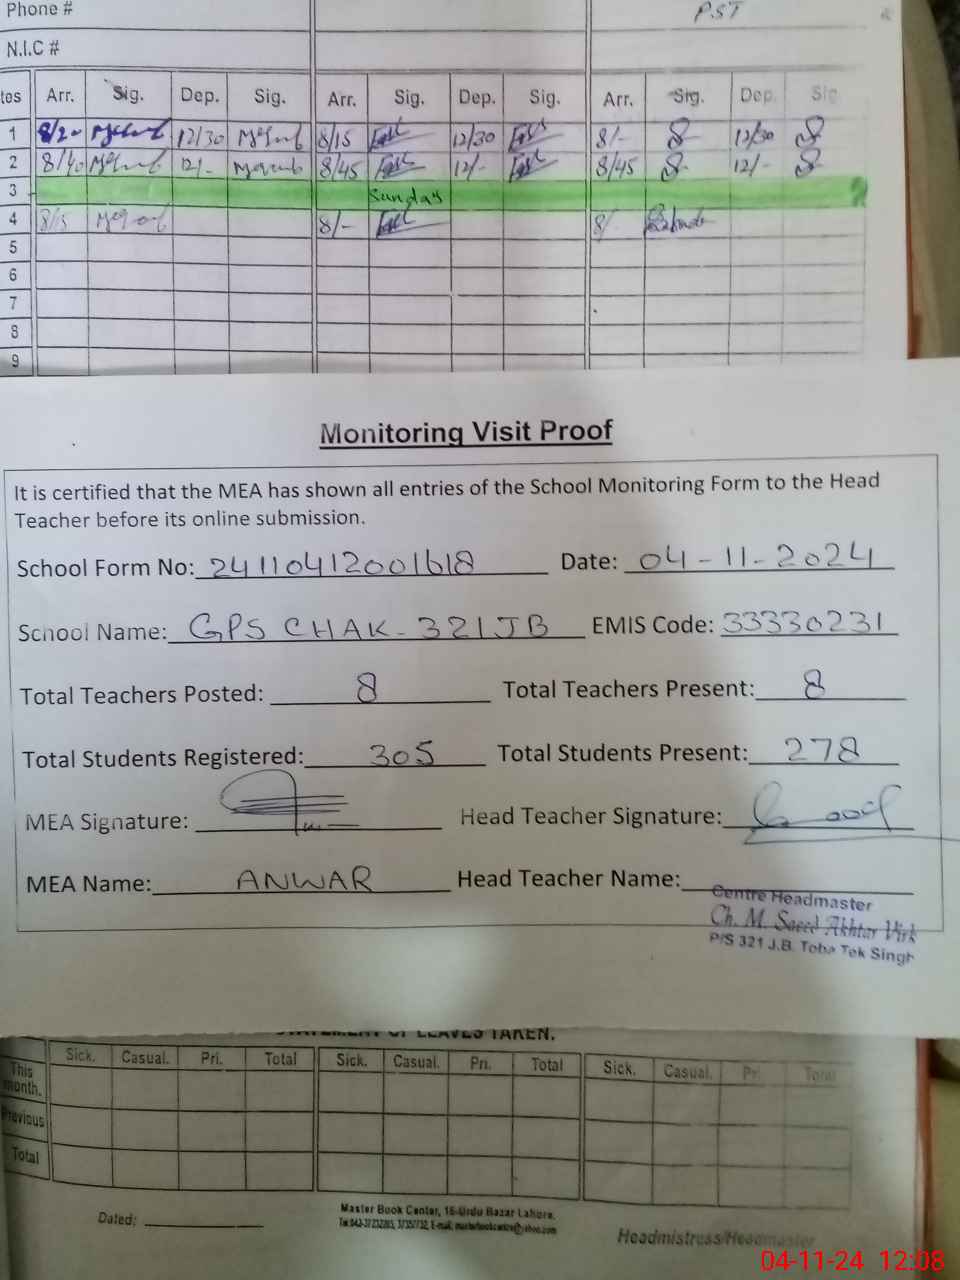 Phone # PST
N.I.C #
tes Arr. Sig. Dep. Sig. Arr. Sig. Dep. Sig. Arr. Sig. Dep. Sig
1 8/20 12/30 8/15 12/30 8/- 12/30
2 8/40 12/- 8/45 12/- 8/45 12/-
3 Sunday
4 8/15 8/- 8/-
5
6
7
8
9
Monitoring Visit Proof
It is certified that the MEA has shown all entries of the School Monitoring Form to the Head
Teacher before its online submission.
School Form No: 24110412001618 Date: 04-11-2024
School Name: GPS CHAK-321JB EMIS Code: 33330231
Total Teachers Posted: 8 Total Teachers Present: 8
Total Students Registered: 305 Total Students Present: 278
MEA Signature: Head Teacher Signature:
MEA Name: ANWAR Head Teacher Name:
Centre Headmaster
Ch. M. Saeed Akhtar Virk
P/S 321 J.B. Toba Tek Singh
STATEMENT OF LEAVES TAKEN.
Sick. Casual. Pri. Total Sick. Casual. Pri. Total Sick. Casual. Pri Total
This
month.
Previous
Total
Dated:
Master Book Center, 16-Urdu Bazar Lahore.
Headmistress/Headmaster
04-11-24 12:08